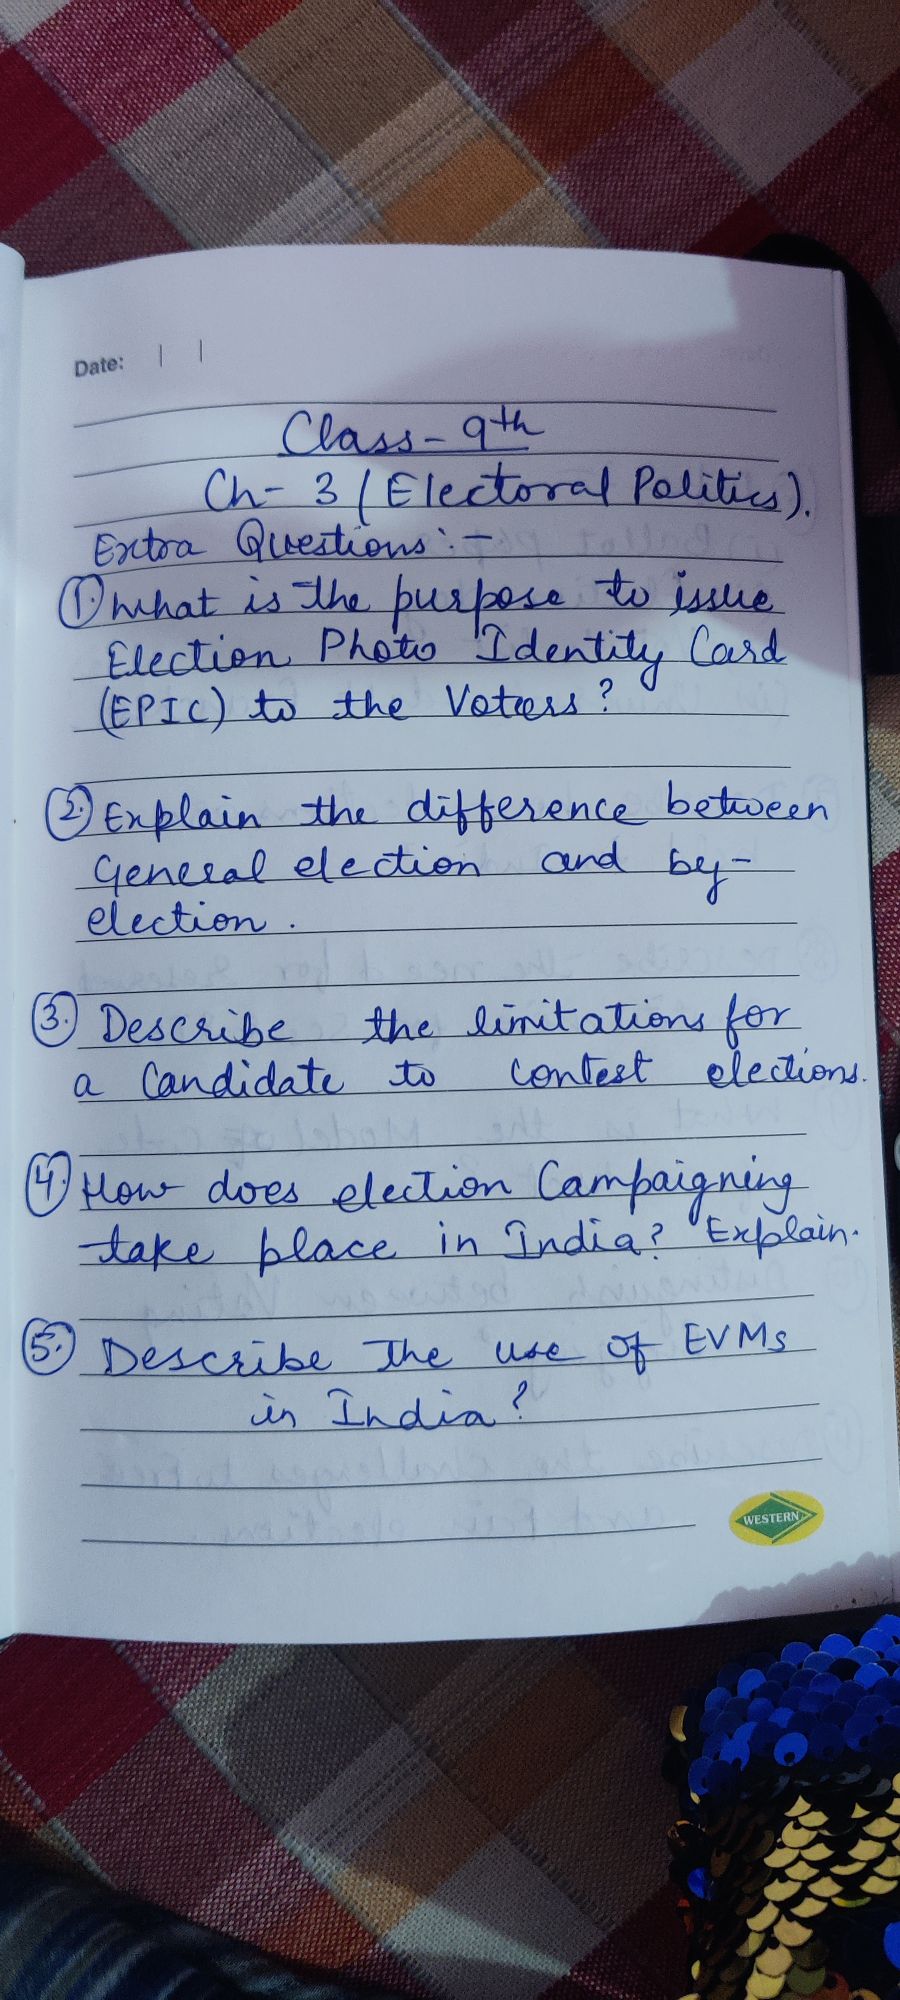 Date: | |
Class - 9th
Ch- 3 (Electoral Politics).
Extra Questions:-
1. What is the purpose to issue
Election Photo Identity Card
(EPIC) to the Voters?
2. Explain the difference between
General election and by-
election.
3. Describe the limitations for
a Candidate to Contest elections.
4. How does election Campaigning
take place in India? Explain.
5. Describe The use of EVMs
in India?
WESTERN